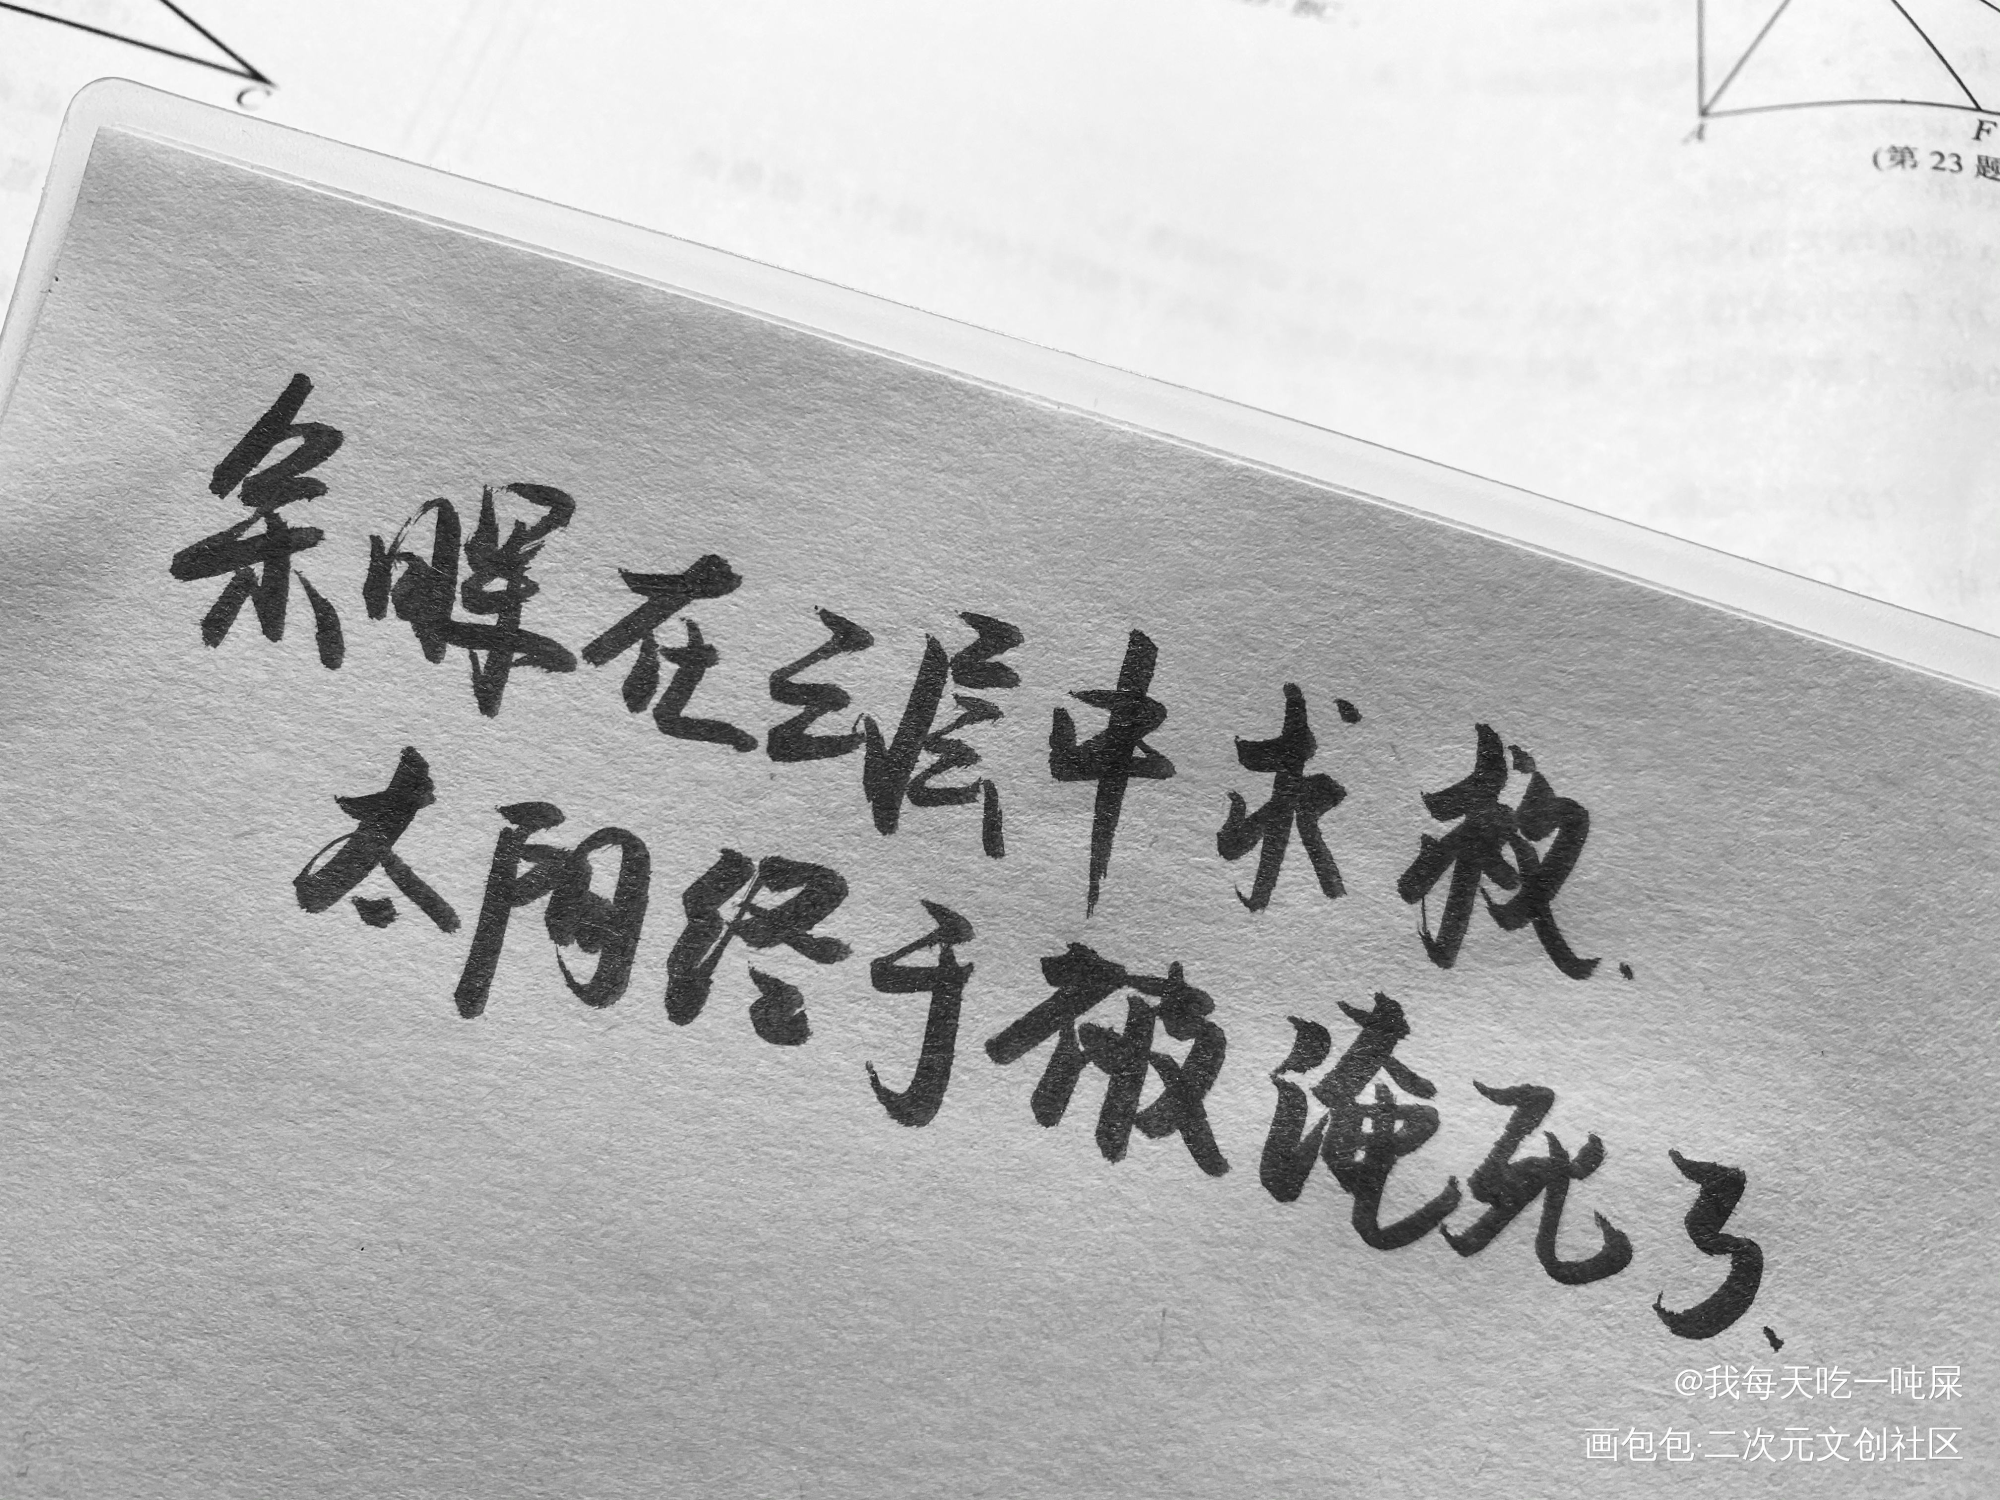 C
A
F
(第 23 题
余晖在云层中求救.
太阳终于被淹死了、
@我每天吃一吨屎
画包包·二次元文创社区